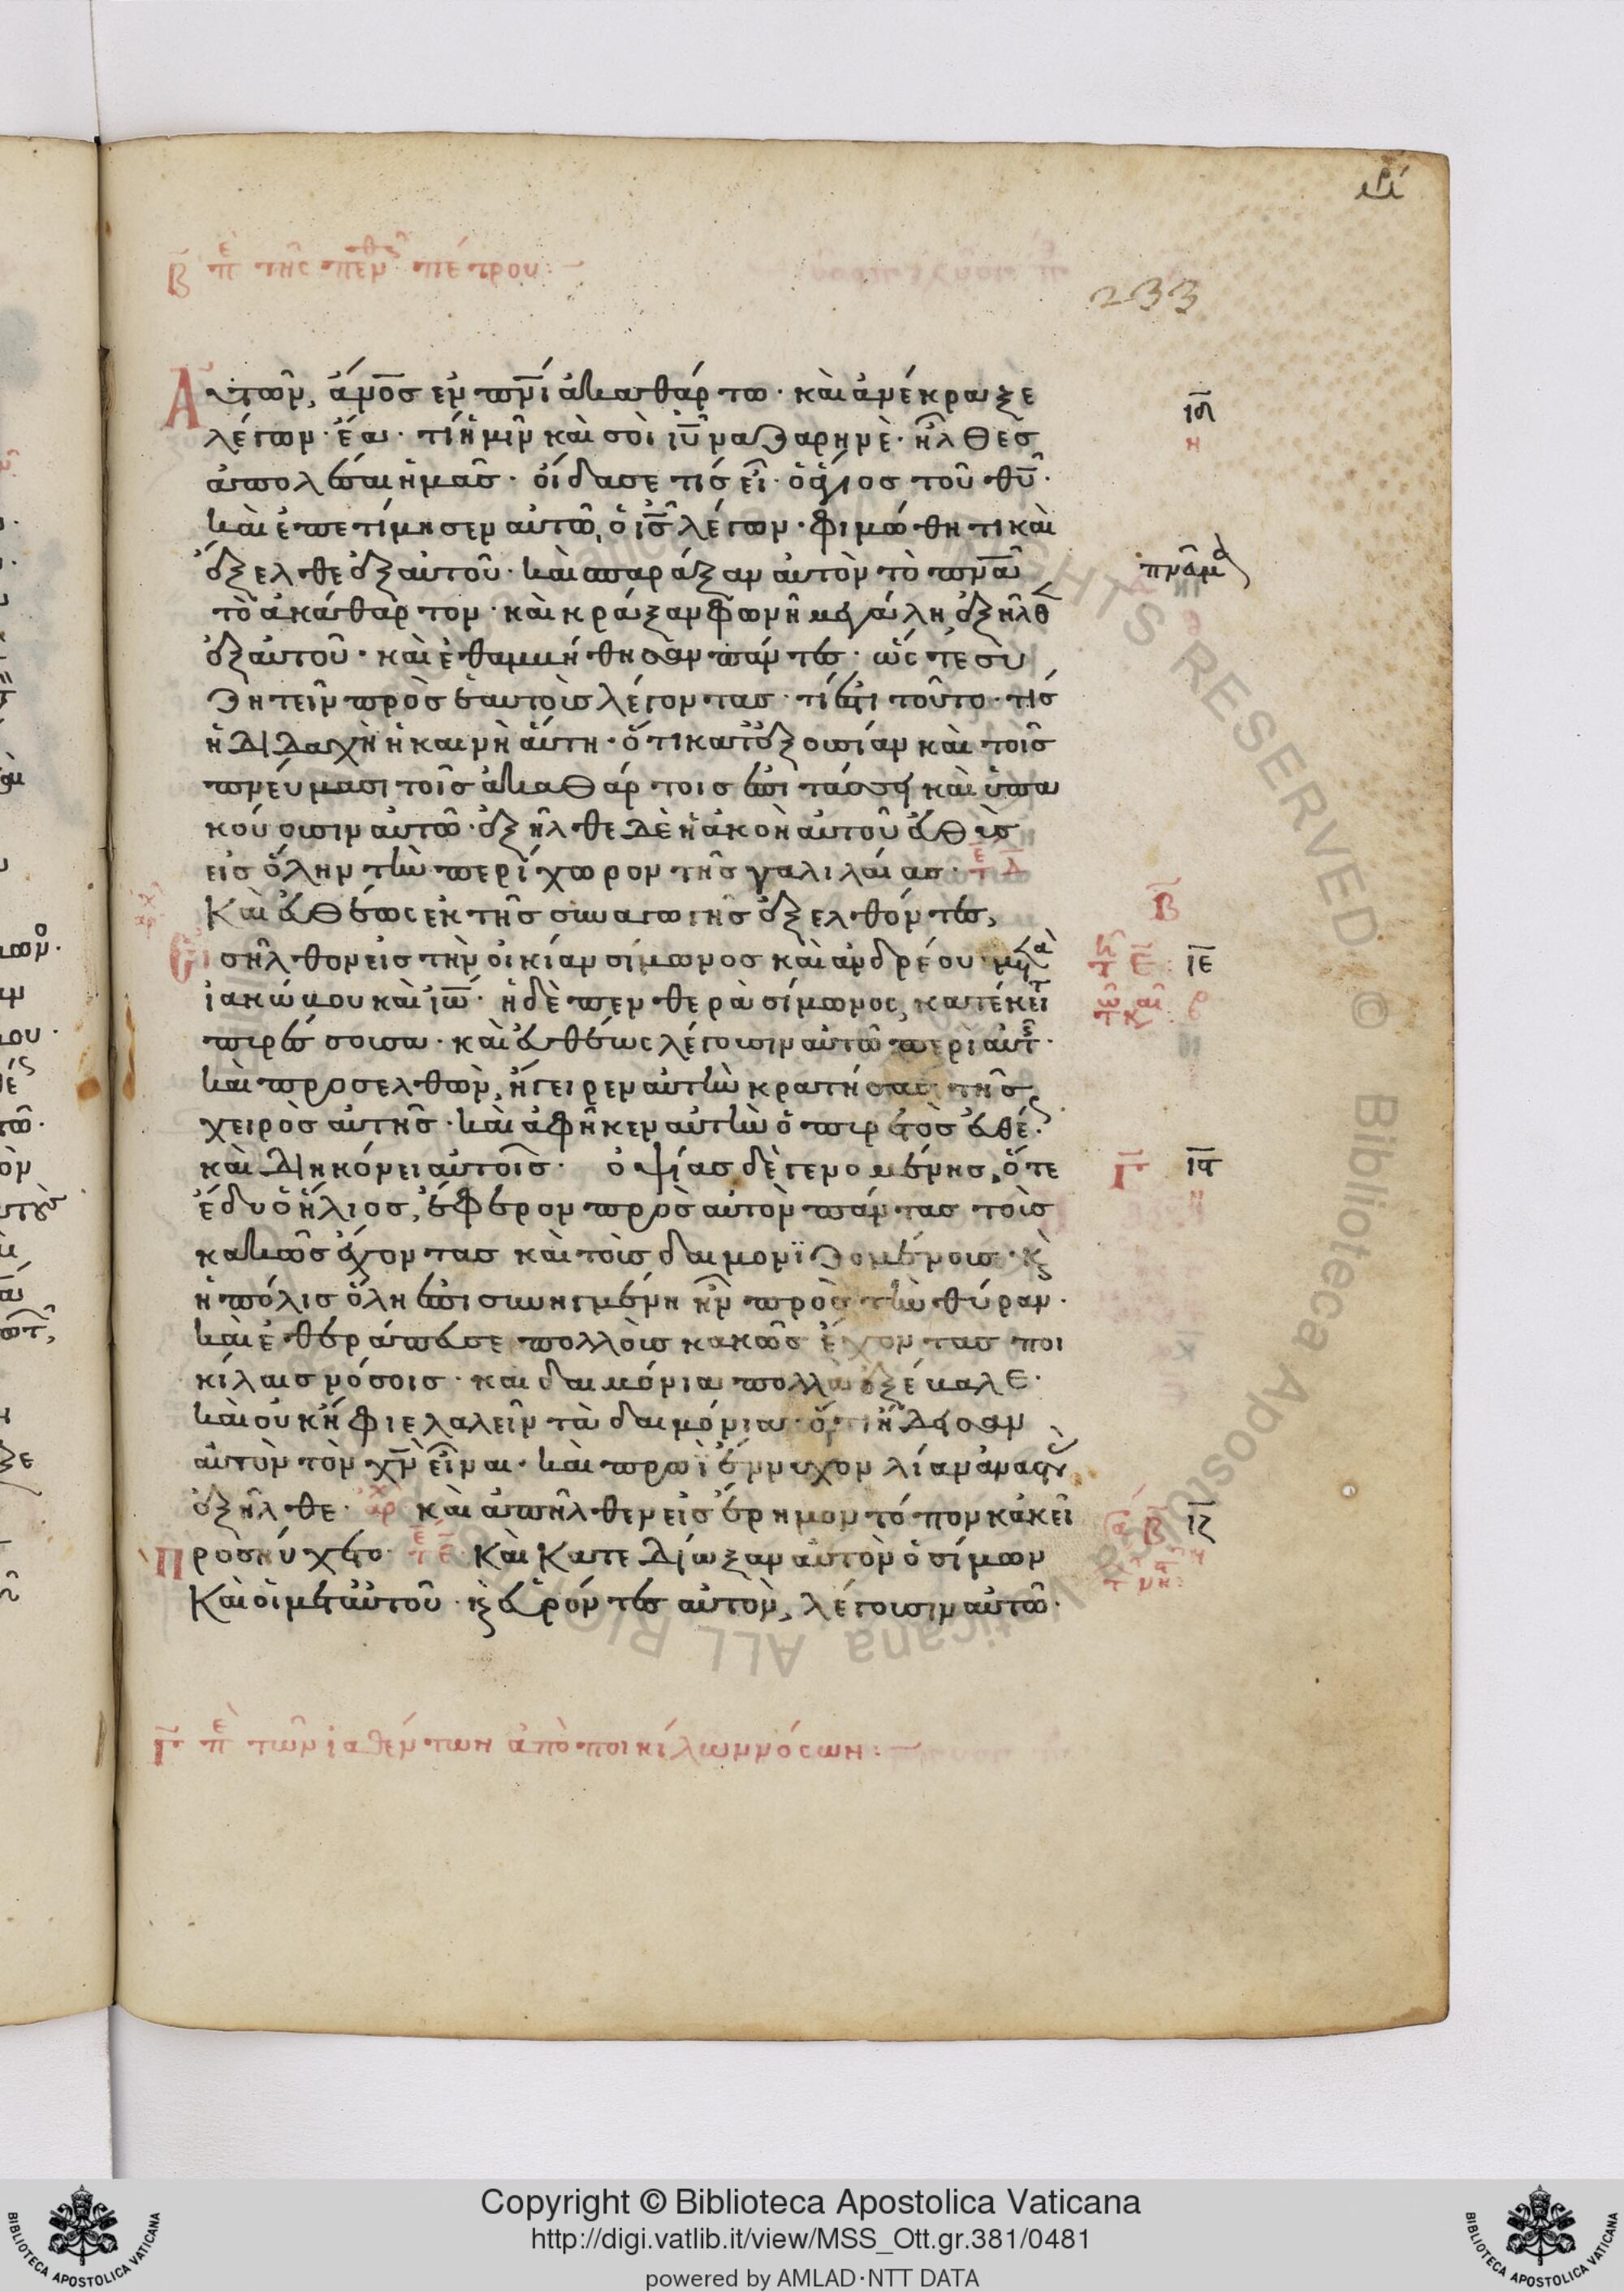 Β πε της πενθς πέτρου:
233
Αὐτῶν, ἄνος ἐν πνι ἀκαθάρτω· καὶ ἀνέκραξε
ιδ
η
λέγων· ἔα· τί ἡμῖν καὶ σοὶ ιυ ναζαρηνὲ· ἦλθες
ἀπολέσαι ἡμᾶς· οἶδα σε τίς εἶ· ὁ ἅγιος τοῦ θυ·
καὶ ἐπετίμησεν αὐτῶ, ὁ ις λέγων· φιμώθητι καὶ
ἔξελθε ἐξ αὐτοῦ· καὶ σπαράξαν αὐτὸν τὸ πνα
τὸ ἀκάθαρτον· καὶ κράξαν φωνῆ μεγάλη, ἐξῆλθε
ἐξ αὐτοῦ· καὶ ἐθαμβήθησαν πάντες· ὥς τε συ
ζητεῖν πρὸς ἑαυτοὺς λέγοντας· τί ἐστι τοῦτο· τίς
ἡ διδαχὴ ἡ καινὴ αὕτη· ὅτι κατ' ἐξουσίαν καὶ τοῖς
πνεύμασι τοῖς ἀκαθάρτοις ἐπιτάσσει καὶ ὑπα
κούουσιν αὐτῶ· ἐξῆλθε δὲ ἡ ἀκοὴ αὐτοῦ εὐθὺς
εἰς ὅλην τὴν περίχωρον τῆς γαλιλαίας· τε Δ
Β
Καὶ εὐθέως ἐκ τῆς συναγωγῆς ἐξελθόντες,
Εἰσῆλθον εἰς τὴν οἰκίαν σίμωνος καὶ ἀνδρέου· μετὰ
ιε
ἰακώβου καὶ ἰω· ἡ δὲ πενθερὰ σίμωνος, κατέκειτ
πυρέσσουσα· καὶ εὐθέως λέγουσιν αὐτῶ περὶ αὐτ·
καὶ προσελθὼν, ἤγειρεν αὐτὴν κρατήσας τῆς
χειρὸς αὐτῆς· καὶ ἀφῆκεν αὐτὴν ὁ πυρετὸς εὐθές·
καὶ διηκόνει αὐτοῖς· ὀψίας δὲ γενομένης, ὅτε
Γ ις
ἔδυ ὁ ἥλιος, ἔφερον πρὸς αὐτὸν πάντας τοὺς
κακῶς ἔχοντας καὶ τοὺς δαιμονϊζομένους· κ
ἡ πόλις ὅλη ἐπισυνηγμένη ἦν πρὸς τὴν θύραν·
καὶ ἐθεράπευσε πολλοὺς κακῶς ἔχοντας ποι
κίλαις νόσοις· καὶ δαιμόνια πολλὰ ἐξέβαλε·
καὶ οὐκ ἤφιε λαλεῖν τὰ δαιμόνια· ὅτι ἤδεισαν
αὐτὸν τὸν χν εἶναι· καὶ πρωῒ ἔννυχον λίαν ἀναστὰς
ἐξῆλθε· ἀρχ καὶ ἀπῆλθεν εἰς ἔρημον τόπον κἀκεῖ
ιζ
Προσηύχετο· τε Ε· Καὶ Κατεδίωξαν αὐτὸν ὁ σίμων
Καὶ οἱ μετ' αὐτοῦ· κ εὑρόντες αὐτὸν, λέγουσιν αὐτῶ·
Γ πε τῶν ἰαθέντων ἀπὸ ποικίλων νόσων:
Copyright © Biblioteca Apostolica Vaticana
http://digi.vatlib.it/view/MSS_Ott.gr.381/0481
powered by AMLAD·NTT DATA
BIBLIOTECA APOSTOLICA VATICANA
BIBLIOTECA APOSTOLICA VATICANA